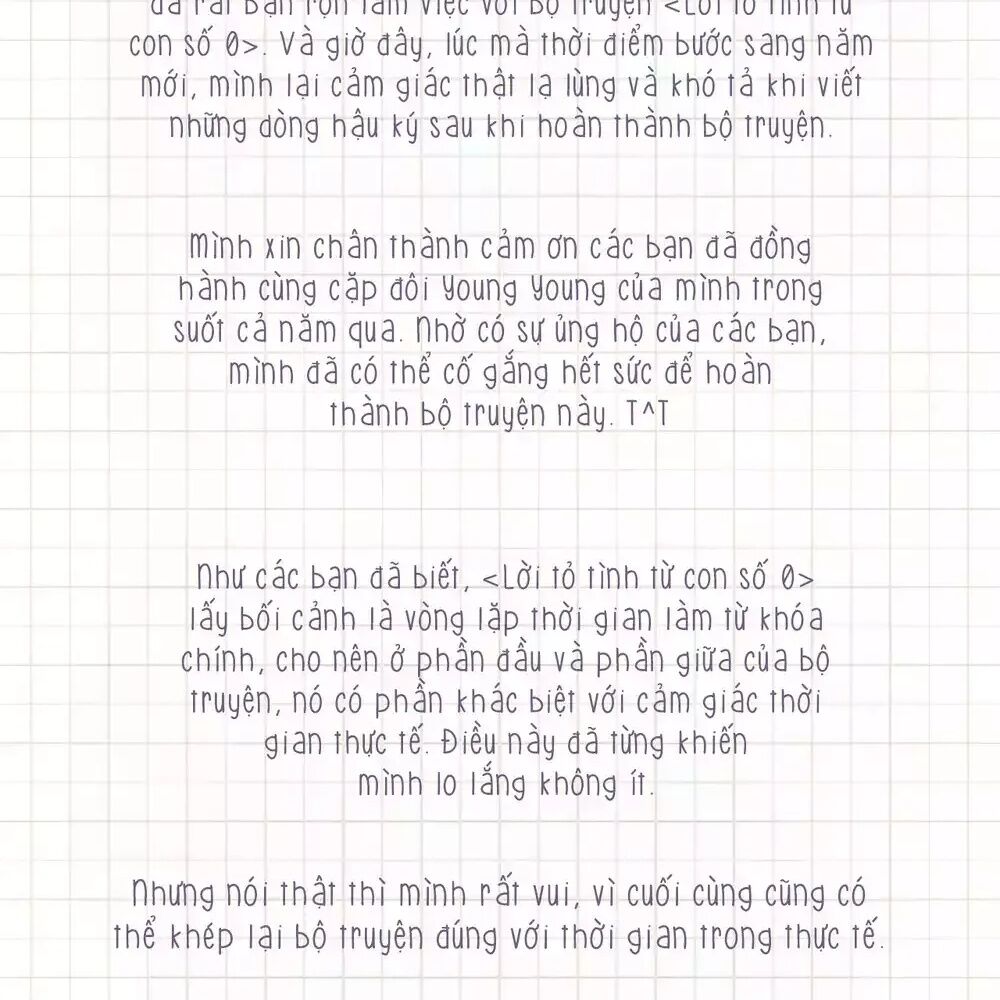 đã rất bận rộn làm việc với bộ truyện <Lời tỏ tình từ
con số 0>. Và giờ đây, lúc mà thời điểm bước sang năm
mới, mình lại cảm giác thật lạ lùng và khó tả khi viết
những dòng hậu ký sau khi hoàn thành bộ truyện.
Mình xin chân thành cảm ơn các bạn đã đồng
hành cùng cặp đôi Young Young của mình trong
suốt cả năm qua. Nhờ có sự ủng hộ của các bạn,
mình đã có thể cố gắng hết sức để hoàn
thành bộ truyện này. T^T
Như các bạn đã biết, <Lời tỏ tình từ con số 0>
lấy bối cảnh là vòng lặp thời gian làm từ khóa
chính, cho nên ở phần đầu và phần giữa của bộ
truyện, nó có phần khác biệt với cảm giác thời
gian thực tế. Điều này đã từng khiến
mình lo lắng không ít.
Nhưng nói thật thì mình rất vui, vì cuối cùng cũng có
thể khép lại bộ truyện đúng với thời gian trong thực tế.